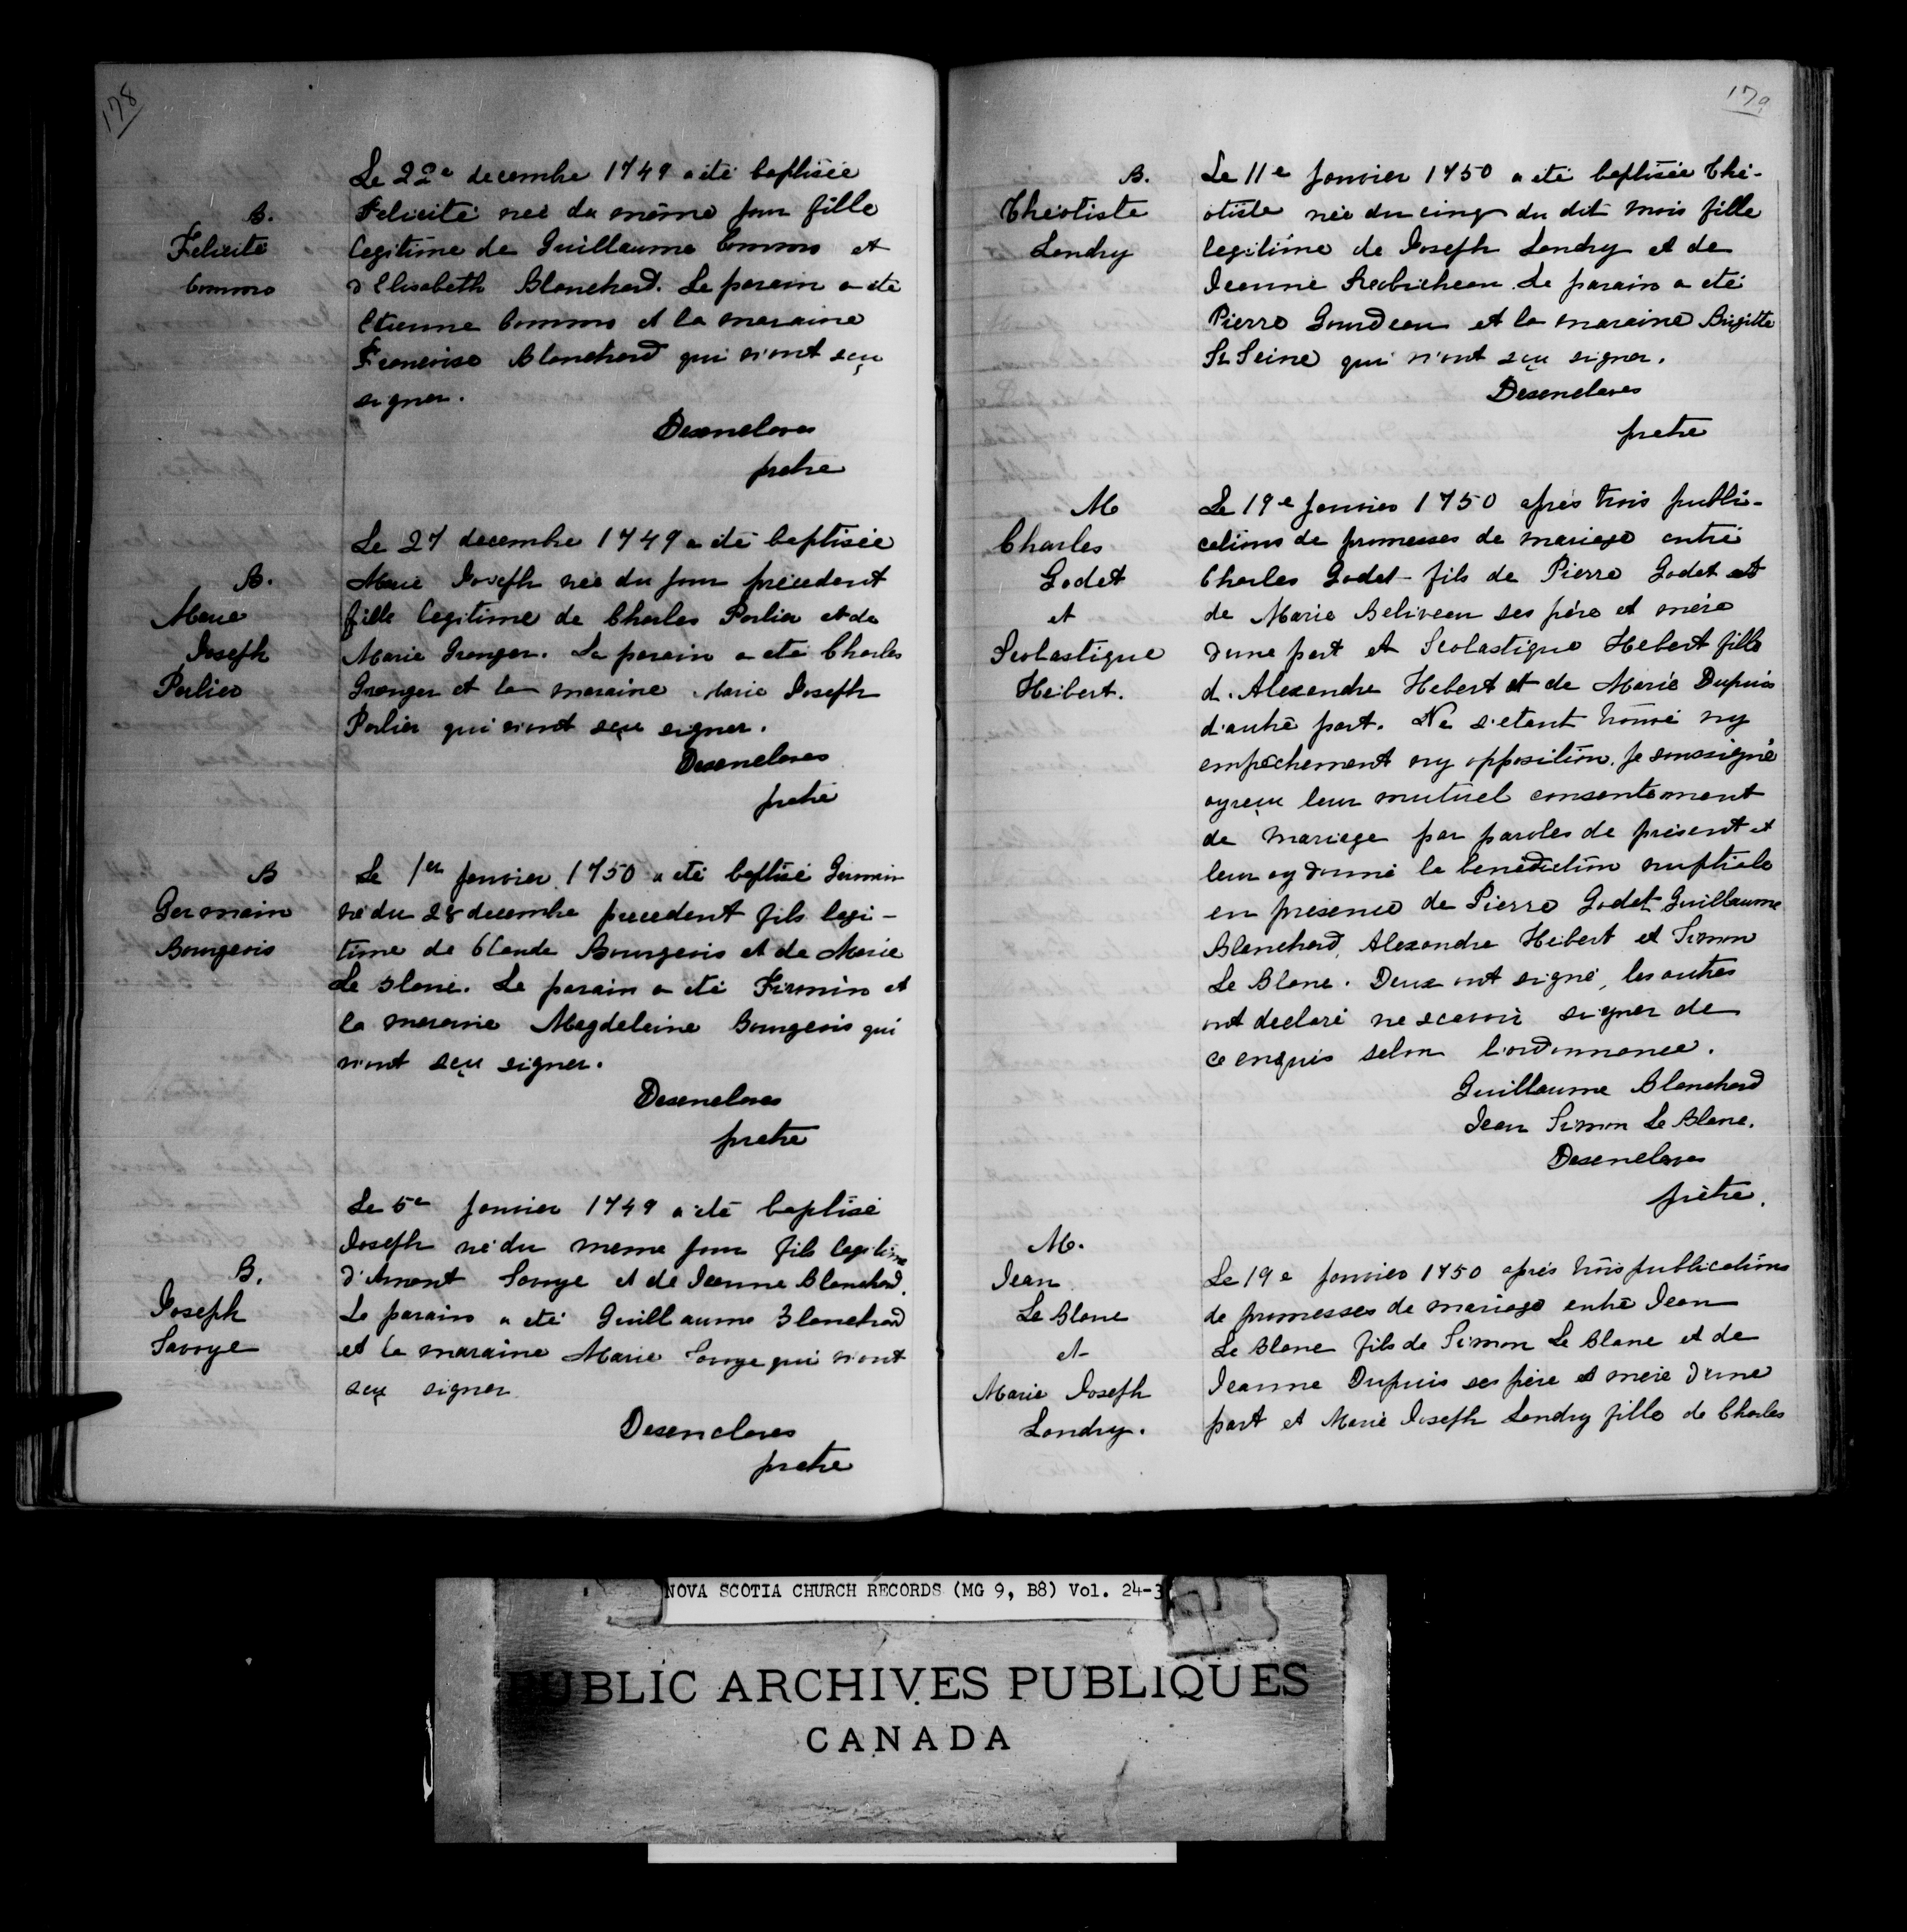 178
Le 22e decembre 1749 a été baptisée
B.
Felicité neé du même jour fille
Felicité
legitime de Guillaume Commo et
Commo
d'Elisabeth Blanchard. Le parain a été
Etienne Commo et la maraine
Francoise Blanchard qui n'ont sçu
signer.
Desenclaves
pretre
Le 27 decembre 1749 a été baptisée
B.
Marie Joseph née du jour précedent
Marie
fille legitime de Charles Porlier et de
Joseph
Marie Granger. Le parain a été Charles
Porlier
Granger et la maraine Marie Joseph
Porlier qui n'ont sçu signer.
Desenclaves
pretre
B
Le 1er janvier 1750 a été baptisé Germain
Germain
né du 28 decembre precedent fils legi-
Bourgeois
time de Claude Bourgeois et de Marie
Le Blanc. Le parain a été Firmin et
la maraine Magdeleine Bourgeois qui
n'ont sçu signer.
Desenclaves
pretre
Le 5e janvier 1749 a été baptisé
Joseph né du meme jour fils legitime
B.
d'Amant Savoye et de Jeanne Blanchard.
Joseph
Le parain a été Guillaume Blanchard
Savoye
et la maraine Marie Savoye qui n'ont
sçu signer
Desenclaves
pretre
179
B.
Le 11e janvier 1750 a été baptisée Thé-
Théotiste
otiste née du cinq du dit mois fille
Landry
legitime de Joseph Landry et de
Jeanne Robicheau. Le parain a été
Pierre Gourdeau et la maraine Brigitte
St Seine qui n'ont sçu signer.
Desenclaves
pretre
M
Le 19e janvier 1750 après trois publi-
Charles
cations de promesses de mariage entre
Godet
Charles Godet fils de Pierre Godet et
et
de Marie Beliveau ses père et mère
Scolastique
d'une part et Scolastique Hebert fille
Hebert.
d'Alexandre Hebert et de Marie Dupuis
d'autre part. Ne s'etant trouvé ny
empêchement ny opposition. Je soussigné
ay reçu leur mutuel consentement
de mariage par paroles de présent et
leur ay donné la benediction nuptiale
en presence de Pierre Godet Guillaume
Blanchard, Alexandre Hebert et Simon
Le Blanc. Deux ont signé, les autres
ont declaré ne scavoir signer de
ce enquis selon l'ordonnance.
Guillaume Blanchard
Jean Simon Le Blanc.
Desenclaves
prètre.
M.
Jean
Le 19e janvier 1750 après trois publications
Le Blanc
de promesses de mariage entre Jean
et
Le Blanc fils de Simon Le Blanc et de
Marie Joseph
Jeanne Dupuis ses père et mère d'une
Landry.
part et Marie Joseph Landry fille de Charles
NOVA SCOTIA CHURCH RECORDS (MG 9, B8) Vol. 24-3
PUBLIC ARCHIVES PUBLIQUES
CANADA